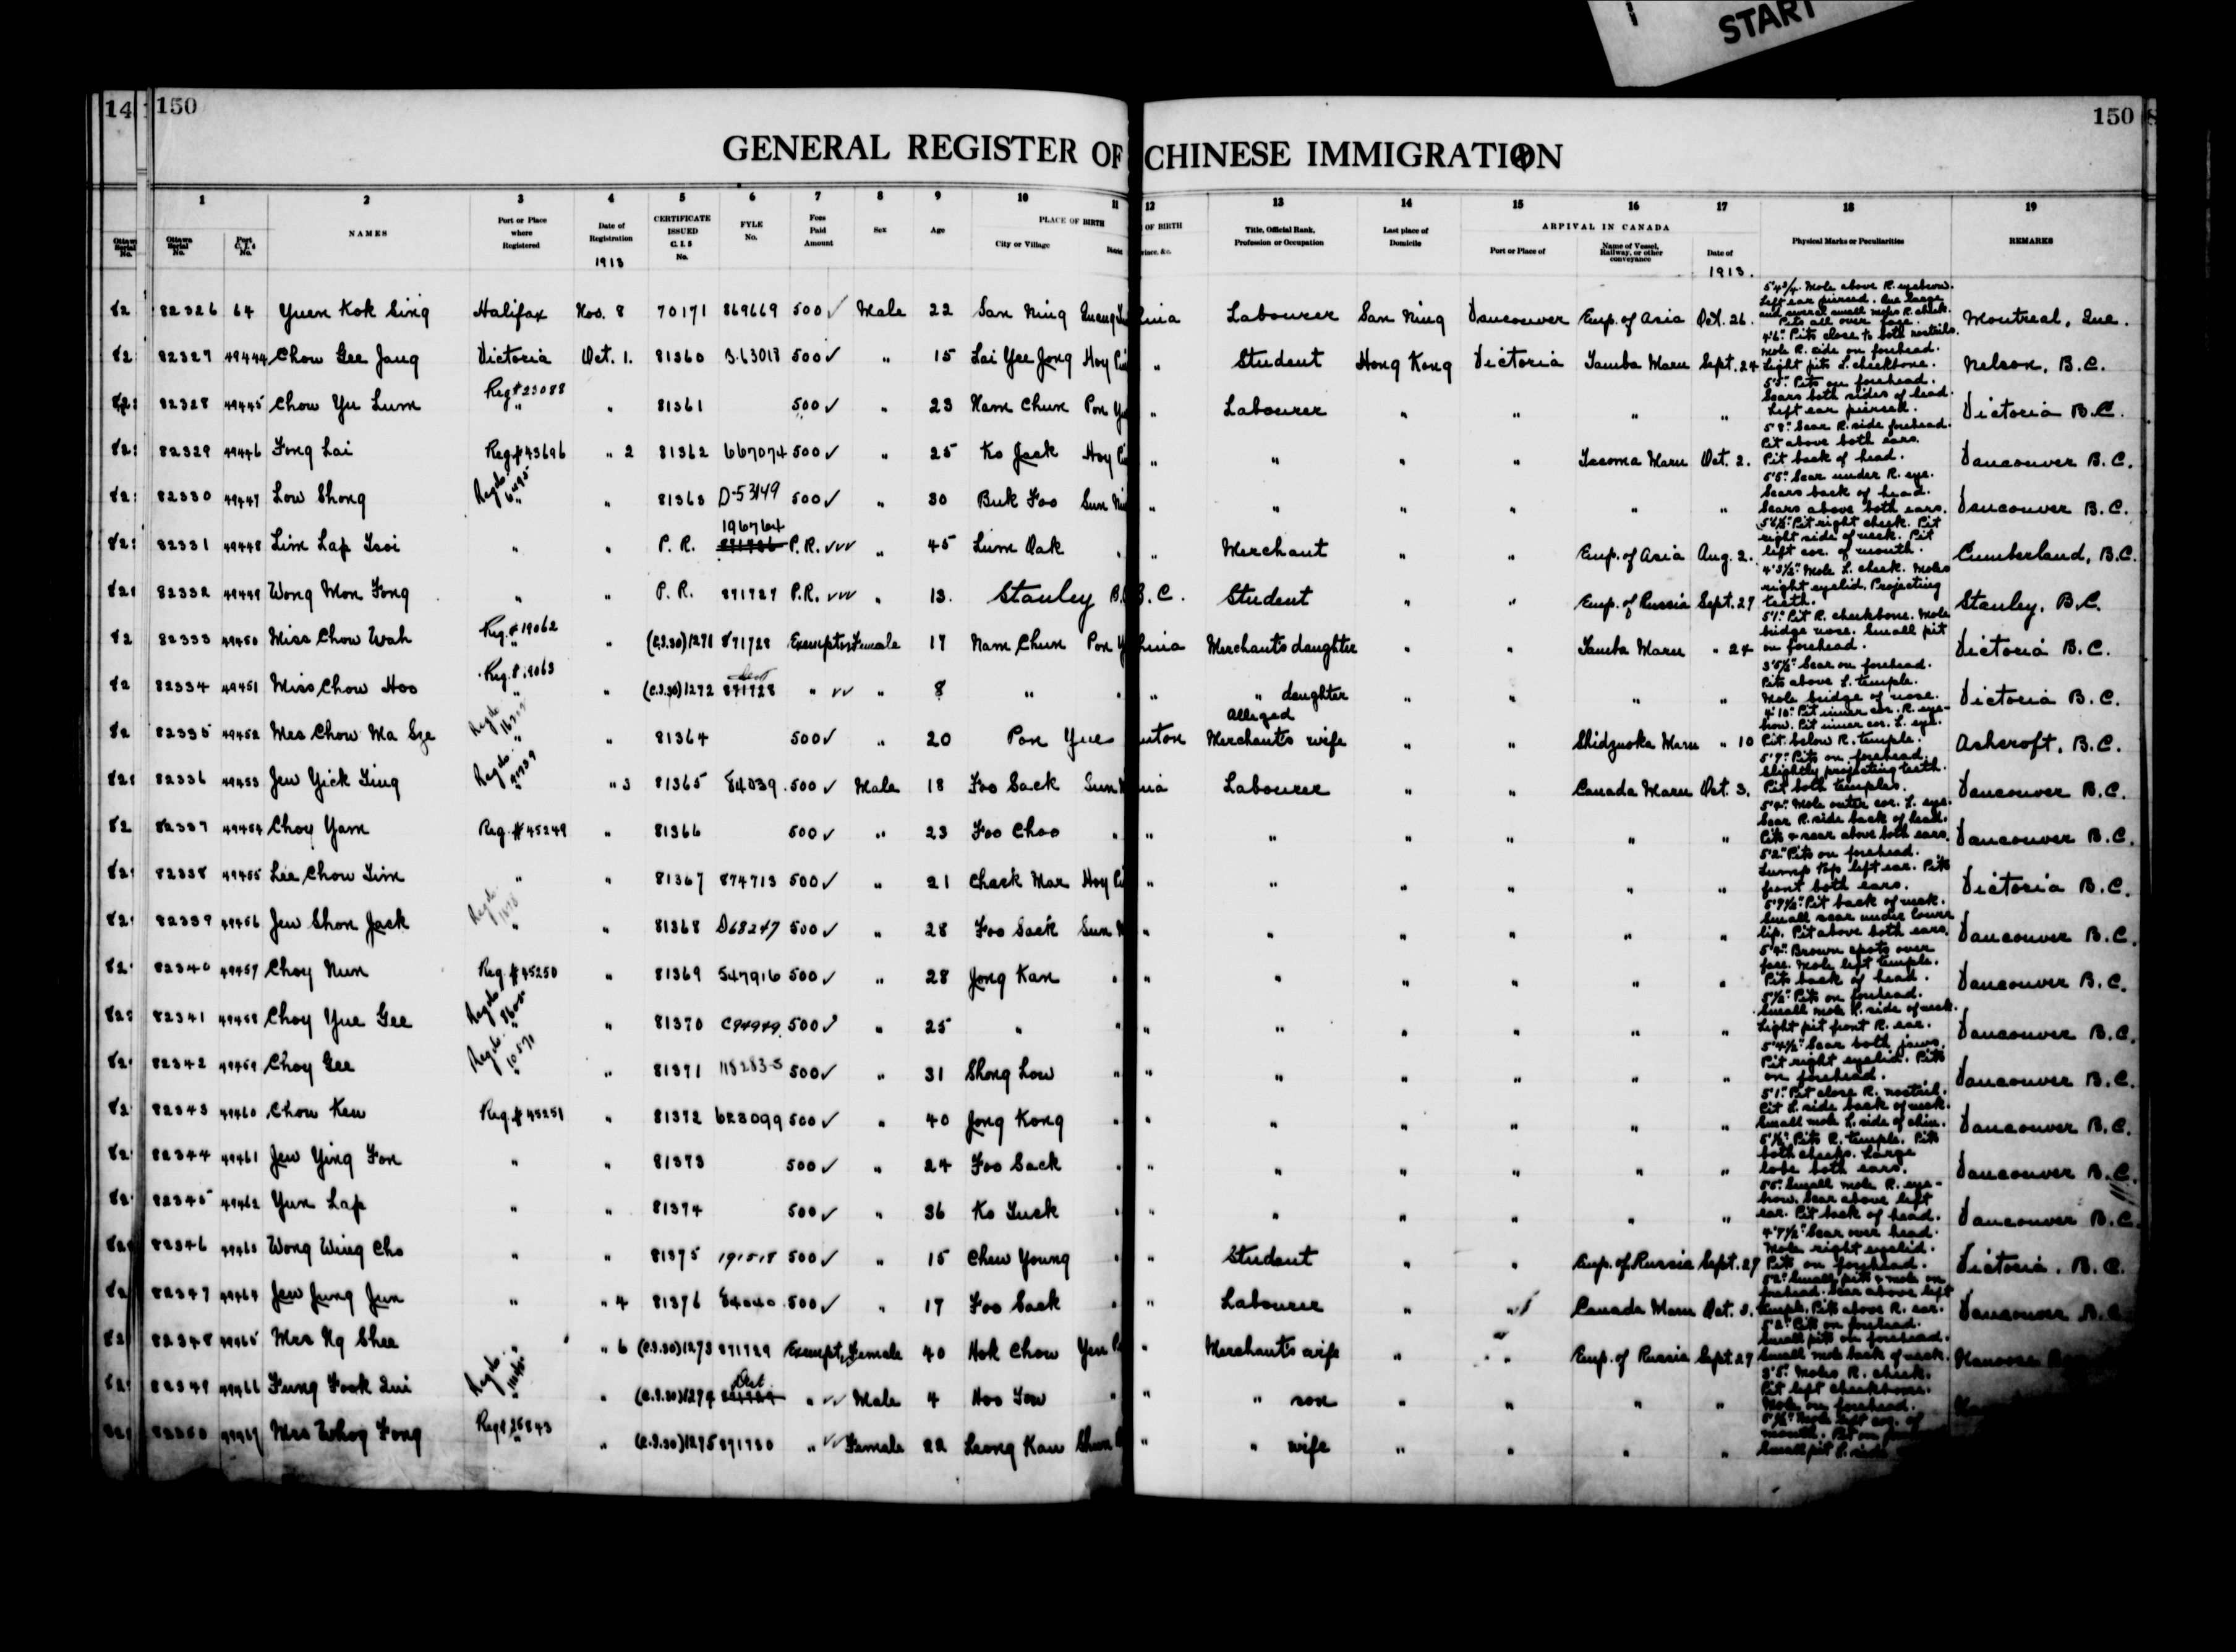 START
14
150
150
GENERAL REGISTER OF CHINESE IMMIGRATION
1 2 3 4 5 6 7 8 9 10 11 12 13 14 15 16 17 18 19
Ottawa Serial No. Port C.I.5 No. NAMES Port or Place where Registered Date of Registration CERTIFICATE ISSUED C.I.5 No. FYLE No. Fees Paid Amount Sex Age PLACE OF BIRTH City or Village OF BIRTH Title, Official Rank, Profession or Occupation Last place of Domicile ARRIVAL IN CANADA Port or Place of Name of Vessel, Railway, or other conveyance Date of Physical Marks or Peculiarities REMARKS
1913 1913.
82326 64 Yuen Kok Sing Halifax Nov. 8 70171 869669 500 ✓ Male 22 San Ning Labourer San Ning Vancouver Emp. of Asia Oct. 26. 5'4¾. Mole above R. eyebrow. Left ear pierced. One large and several small moles R. cheek. Pits all over face. Montreal, Que.
82327 49444 Chow Gee Jang Victoria Oct. 1. 81360 B.63018 500 ✓ " 15 Lai Yee Jong Hoy " Student Hong Kong Victoria Tamba Maru Sept. 24 4'6". Pits close to both nostrils. Mole R. side on forehead. Light pits L. cheekbone. Nelson, B.C.
82328 49445 Chow Yu Lum Reg # 23088 " " 81361 500 ✓ " 23 Nam Chun Pon " Labourer " " " " Pits on forehead. Scars both sides of head. Left ear pierced. Victoria B.C.
82329 49446 Fong Lai Reg. # 43696 " 2 81362 667074 500 ✓ " 25 Ko Jack Hoy " " " " Tacoma Maru Oct. 2. 5'8". Scar R. side forehead. Pit above both ears. Pit back of head. Vancouver B.C.
82330 49447 Low Shong " " 81363 D-53149 500 ✓ " 30 Buk Foo Sun " " " " " " 5'5". Scar under R. eye. Scars back of head. Scars above both ears. Vancouver B.C.
82331 49448 Lim Lap Tsoi " " P. R. 196764 P.R. ✓✓✓ " 45 Lum Oak " " Merchant " " Emp. of Asia Aug. 2. Pit right cheek. Pit right side of neck. Pit left cor. of mouth. Cumberland, B.C.
82332 49449 Wong Mon Fong " " P. R. 871727 P.R. ✓✓✓ " 13. Stanley B.C. Student " " Emp. of Russia Sept. 27 4'3½". Mole L. cheek. Moles right eyelid. Projecting teeth. Stanley, B.C.
82333 49450 Miss Chow Wah Reg. # 19062 " " (C.I.30) 1271 871728 Exempt ✓✓ Female 17 Nam Chun Pon Merchants daughter " " Tamba Maru " 24 5'1". Pit R. cheekbone. Mole bridge nose. Small pit on forehead. Victoria B.C.
82334 49451 Miss Chow Hoo Reg. # 19063 " " (C.I.30) 1272 871728 " ✓✓ " 8 " " " " daughter " " " " 3'5½". Scar on forehead. Pits above L. temple. Mole bridge of nose. Victoria B.C.
82335 49452 Mrs Chow Ma Sze " " 81364 500 ✓ " 20 Pon Yue Alleged Merchants wife " " Shidzuoka Maru " 10 4'10". Pit inner cor. R. eyebrow. Pit inner cor. L. eye. Pit below R. temple. Ashcroft, B.C.
82336 49453 Jew Yick Ting " " 3 81365 84039 500 ✓ Male 18 Foo Sack Sun Labourer " " Canada Maru Oct. 3. 5'7". Pits on forehead. Slightly projecting teeth. Pit both temples. Vancouver B.C.
82337 49454 Choy Yam Reg. # 45249 " 81366 500 ✓ " 23 Foo Choo " " " " " " " Mole outer cor. L. eye. Scar R. side back of head. Pits & scar above both ears. Vancouver B.C.
82338 49455 Lee Chow Tim " " 81367 874713 500 ✓ " 21 Chack Mar Hoy " " " " " " 5'2". Pits on forehead. Lump top left ear. Pits front both ears. Victoria B.C.
82339 49456 Jew Shon Jack " " 81368 D68247 500 ✓ " 28 Foo Sack Sun " " " " " " 5'7½". Pit back of neck. Small scar under lower lip. Pit above both ears. Vancouver B.C.
82340 49457 Choy Nun Reg. # 45250 " 81369 547916 500 ✓ " 28 Jong Kan " " " " " " " Brown spots over face. Mole left temple. Pits back of head. Vancouver B.C.
82341 49458 Choy Yue Gee " " 81370 C94949 500 ✓ " 25 " " " " " " " " Pits on forehead. Small mole R. side of neck. Light pit front R. ear. Vancouver B.C.
82342 49459 Choy Gee Reg. # 10571 " " 81371 500 ✓ " 31 Shong Low " " " " " " " 5'4½". Scar both jaws. Pit right eyelid. Pits on forehead. Vancouver B.C.
82343 49460 Chow Ken Reg. # 45251 " 81372 623099 500 ✓ " 40 Jong Kong " " " " " " " 5'1". Pit close R. nostril. Pit L. side back of neck. Small mole L. side of chin. Vancouver B.C.
82344 49461 Jew Ying Fon " " 81373 500 ✓ " 24 Foo Sack " " " " " " " Pits R. temple. Pits both cheeks. Large lobe both ears. Vancouver B.C.
82345 49462 Yun Lap " " 81374 500 ✓ " 36 Ko Tuck " " " " " " " 5'5". Small mole R. eyebrow. Scar above left ear. Pit back of head. Vancouver B.C.
82346 49463 Wong Wing Cho " " 81375 191518 500 ✓ " 15 Chew Young " " Student " " Emp. of Russia Sept. 27 4'7½". Scar over head. Mole right eyelid. Pits on forehead. Victoria, B.C.
82347 49464 Jew Jung Jun " " 4 81376 84040 500 ✓ " 17 Foo Sack " " Labourer " " Canada Maru Oct. 3. 5'2". Small pits & mole on forehead. Scar above left temple. Pits above R. ear. Vancouver B.C.
82348 49465 Mrs Ng Shee " " 6 (C.I.30) 1273 871729 Exempt Female 40 Hok Chow Yen " Merchants wife " " Emp. of Russia Sept. 27 5'2". Pits on forehead. Small pits on forehead. Small mole back of neck.
82349 49466 Fung Fook Qui " " (C.I.30) 1274 " ✓✓ Male 4 Hoo Tow " " " son " " " " 3'5". Moles R. cheek. Pit left cheekbone. Mole on forehead.
82350 49467 Mrs Whoy Fong " " (C.I.30) 1275 871730 " ✓✓ Female 22 Leong Kau Shun " " wife " " " " Mole left cor. of mouth. Pit on Small pit L. side